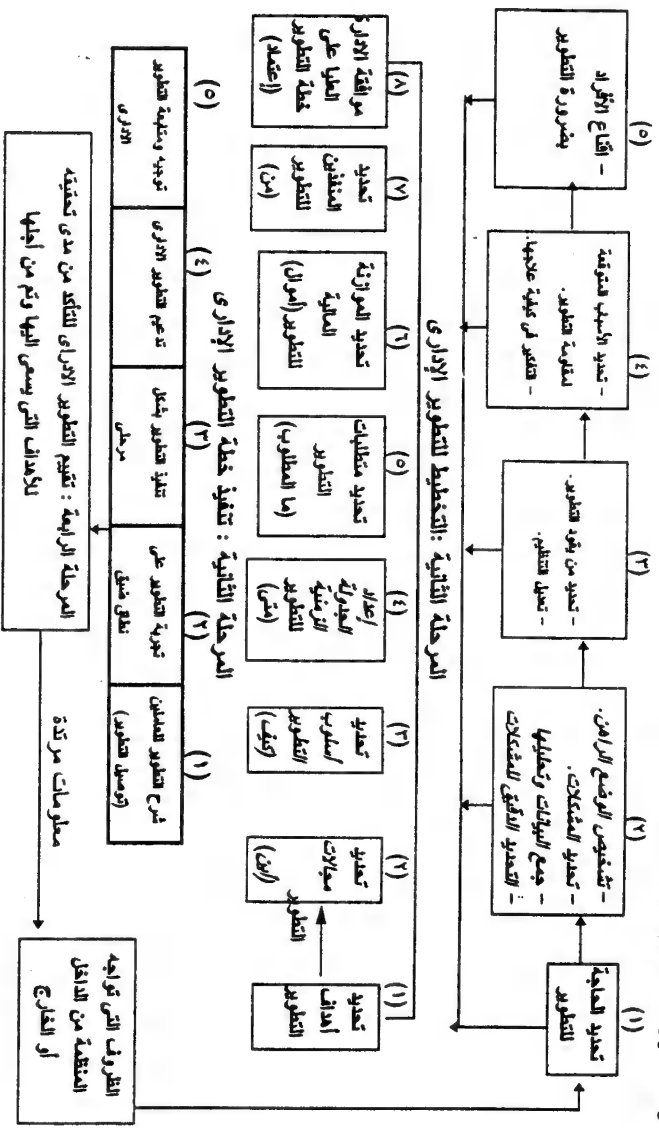 (١)
تحديد الحاجة
للتطوير
(٢)
- تشخيص الوضع الراهن.
- تحديد المشكلات.
- جمع البيانات وتحليلها
- التحديد الدقيق للمشكلات
(٣)
- تحديد من يقود التطوير.
- تعديل التنظيم.
(٤)
- تحديد الأسباب المتوقعة
لمقاومة التطوير.
- التفكير فى كيفية علاجها.
(٥)
- اقناع الأفراد
بضرورة التطوير
المرحلة الثانية :التخطيط للتطوير الإدارى
(١)
تحديد
أهداف
التطوير
(٢)
تحديد
مجالات
التطوير
(أين)
(٣)
تحديد
اسلوب
التطوير
(كيف)
(٤)
إعداد
الجدولة
الزمنية
للتطوير
(متى)
(٥)
تحديد متطلبات
التطوير
(ما المطلوب)
(٦)
تحديد الموازنة
المالية
للتطوير (أموال)
(٧)
تحديد
المنفذين
للتطوير
(من)
(٨)
موافقة الادارة
العليا على
خطة التطوير
(إعتماد)
المرحلة الثانية : تنفيذ خطة التطوير الإدارى
(١)
شرح التطوير للعاملين
(توصيل التطوير)
(٢)
تجربة التطوير على
نطاق ضيق
(٣)
تنفيذ التطوير بشكل
مرحلى
(٤)
تدعيم التطوير الادارى
(٥)
توجيه ومتابعة التطوير
الادارى
المرحلة الرابعة : تقييم التطوير الادراى للتأكد من مدى تحقيقه
للأهداف التى يسعى اليها وتم من أجلها
معلومات مرتدة
الظروف التى تواجه
المنظمة من الداخل
أو الخارج